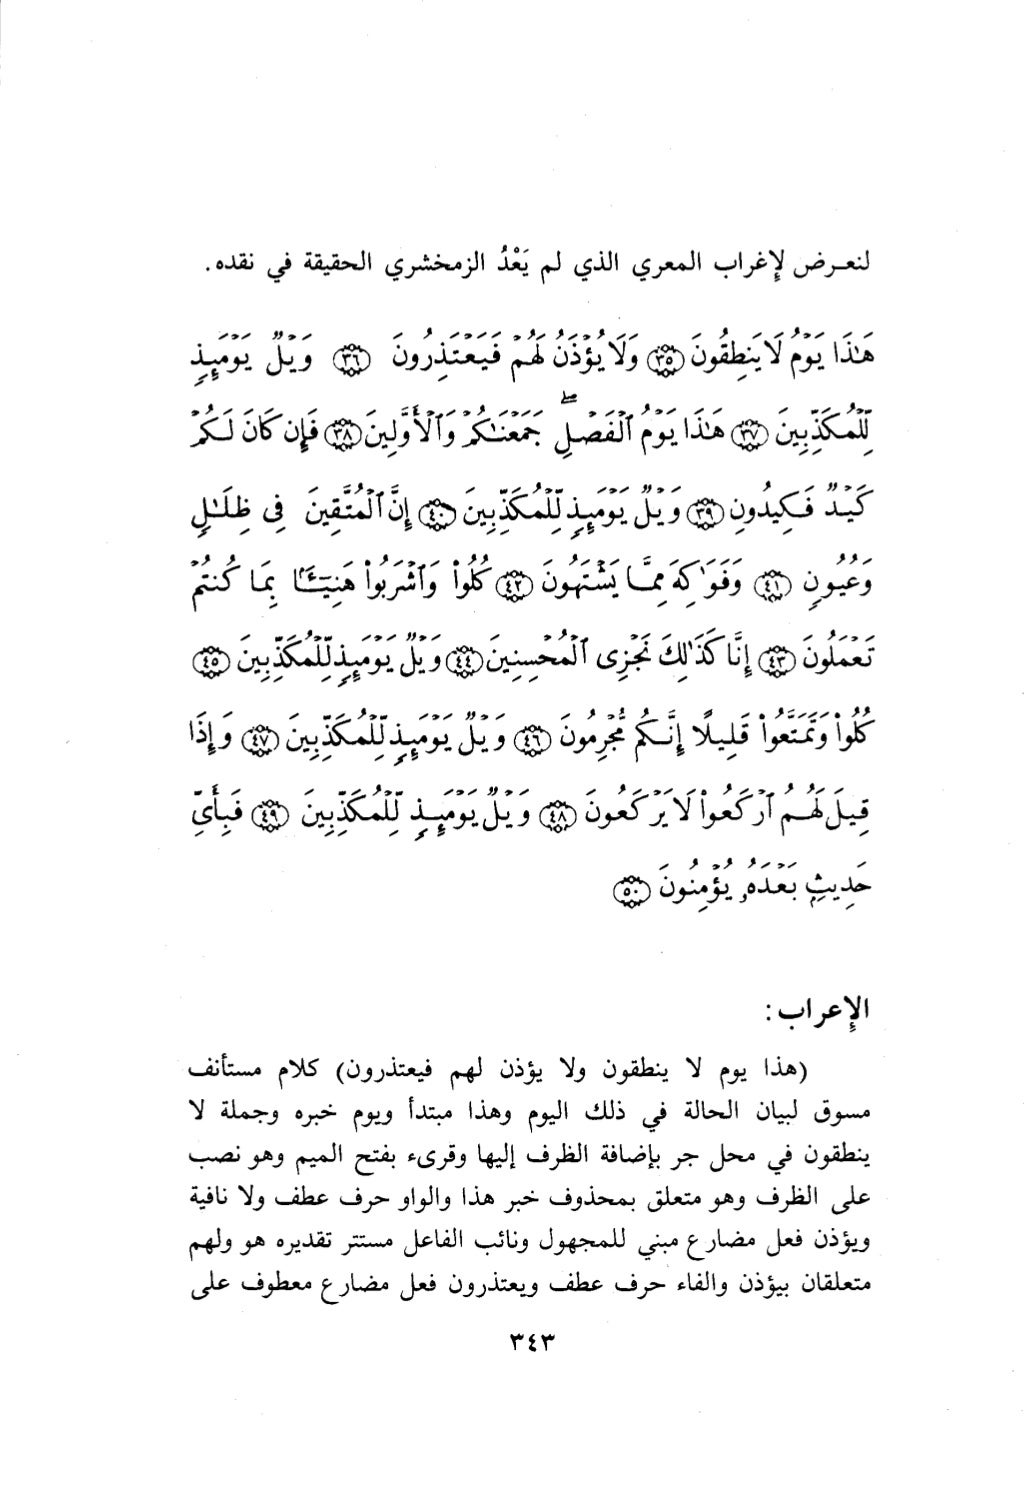 لنعـرض لإغراب المعري الذي لم يَعْدُ الزمخشري الحقيقة في نقده.
هَٰذَا يَوْمُ لَا يَنطِقُونَ ﴿٣٥﴾ وَلَا يُؤْذَنُ لَهُمْ فَيَعْتَذِرُونَ ﴿٣٦﴾ وَيْلٌ يَوْمَئِذٍ
لِّلْمُكَذِّبِينَ ﴿٣٧﴾ هَٰذَا يَوْمُ ٱلْفَصْلِ ۖ جَمَعْنَٰكُمْ وَٱلْأَوَّلِينَ ﴿٣٨﴾ فَإِن كَانَ لَكُمْ
كَيْدٌ فَكِيدُونِ ﴿٣٩﴾ وَيْلٌ يَوْمَئِذٍ لِّلْمُكَذِّبِينَ ﴿٤٠﴾ إِنَّ ٱلْمُتَّقِينَ فِى ظِلَٰلٍ
وَعُيُونٍ ﴿٤١﴾ وَفَوَٰكِهَ مِمَّا يَشْتَهُونَ ﴿٤٢﴾ كُلُواْ وَٱشْرَبُواْ هَنِيٓـَٔۢا بِمَا كُنتُمْ
تَعْمَلُونَ ﴿٤٣﴾ إِنَّا كَذَٰلِكَ نَجْزِى ٱلْمُحْسِنِينَ ﴿٤٤﴾ وَيْلٌ يَوْمَئِذٍ لِّلْمُكَذِّبِينَ ﴿٤٥﴾
كُلُواْ وَتَمَتَّعُواْ قَلِيلًا إِنَّكُم مُّجْرِمُونَ ﴿٤٦﴾ وَيْلٌ يَوْمَئِذٍ لِّلْمُكَذِّبِينَ ﴿٤٧﴾ وَإِذَا
قِيلَ لَهُمُ ٱرْكَعُواْ لَا يَرْكَعُونَ ﴿٤٨﴾ وَيْلٌ يَوْمَئِذٍ لِّلْمُكَذِّبِينَ ﴿٤٩﴾ فَبِأَىِّ
حَدِيثٍۭ بَعْدَهُۥ يُؤْمِنُونَ ﴿٥٠﴾
الإعراب :
(هذا يوم لا ينطقون ولا يؤذن لهم فيعتذرون) كلام مستأنف
مسوق لبيان الحالة في ذلك اليوم وهذا مبتدأ ويوم خبره وجملة لا
ينطقون في محل جر بإضافة الظرف إليها وقرىء بفتح الميم وهو نصب
على الظرف وهو متعلق بمحذوف خبر هذا والواو حرف عطف ولا نافية
ويؤذن فعل مضارع مبني للمجهول ونائب الفاعل مستتر تقديره هو ولهم
متعلقان بيؤذن والفاء حرف عطف ويعتذرون فعل مضارع معطوف على
٣٤٣